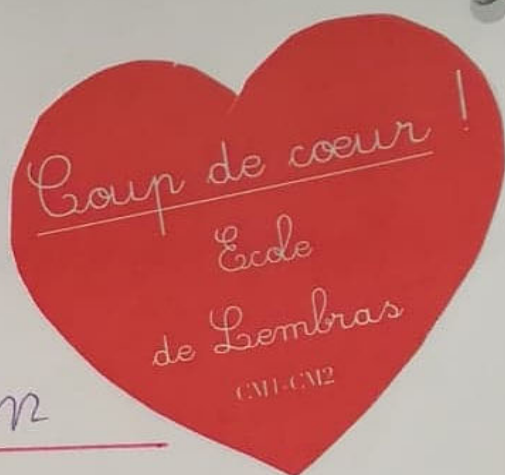 Coup de coeur !
Ecole
de Lembras
CM1-CM2